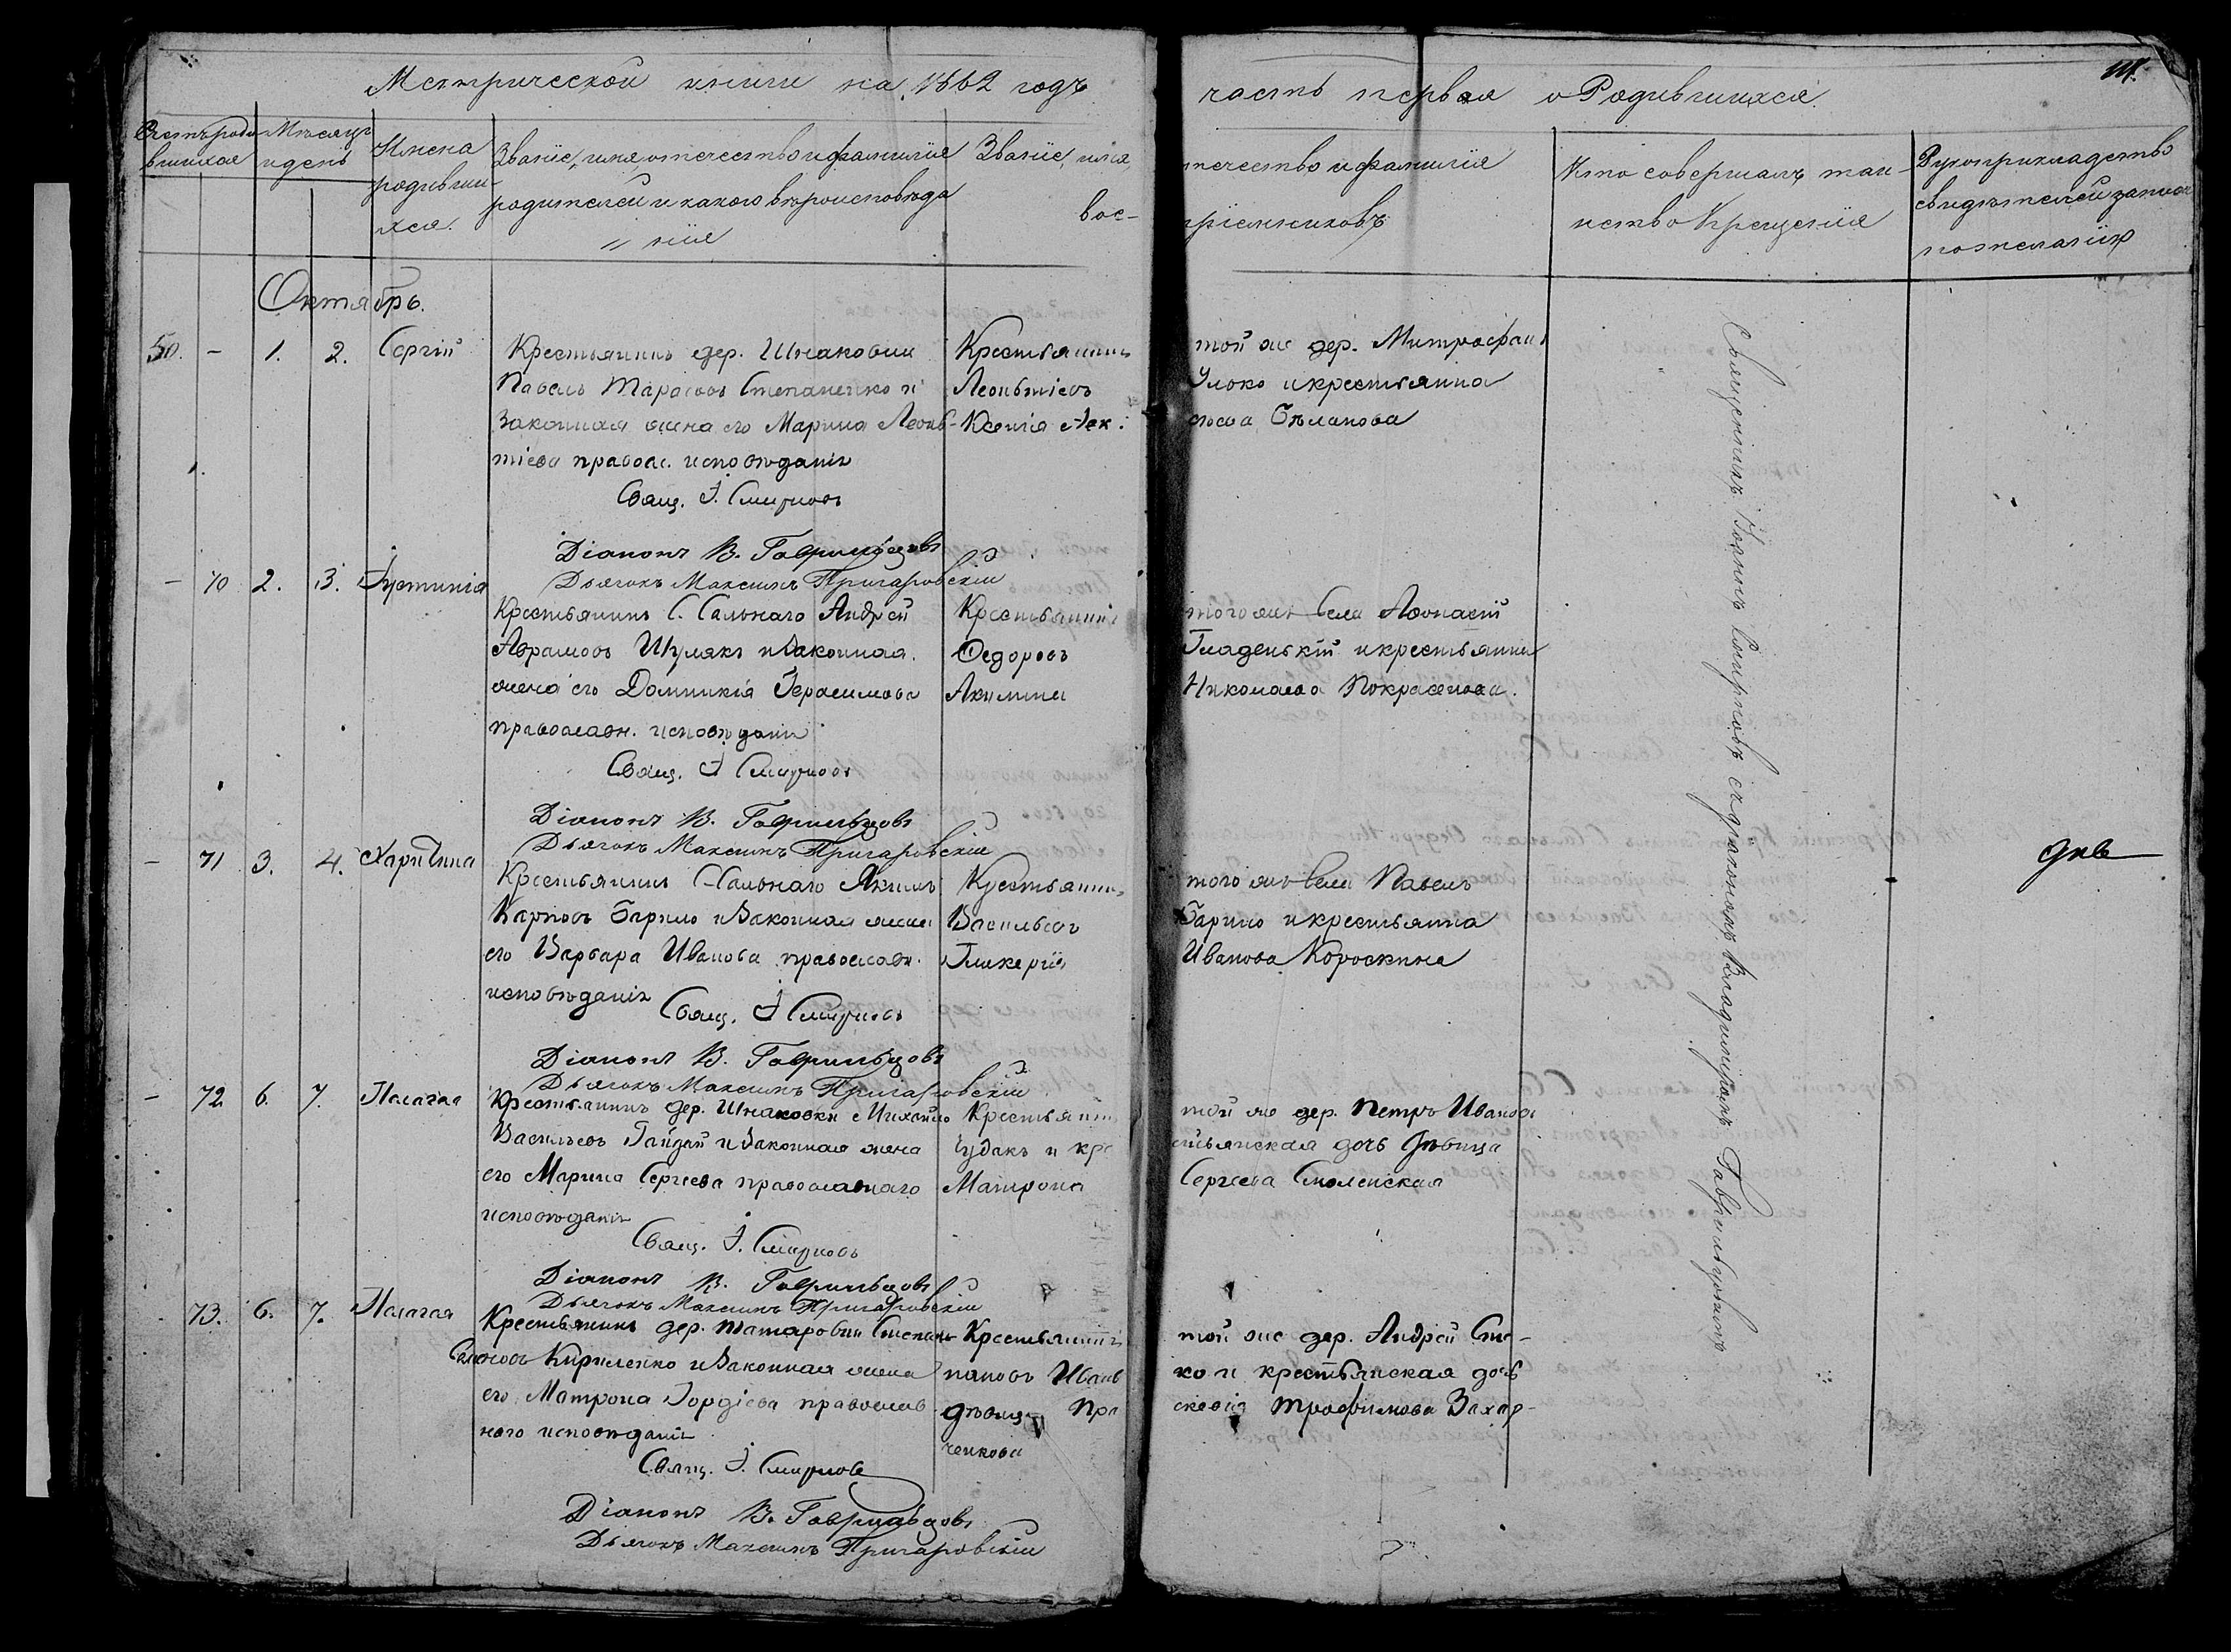 Метрической книги на 1862 годъ
часть первая о Родившихся.
Счетъ роди
вшихся
Мѣсяцъ
и день
Имена
родивши-
хся.
Званіе, имя отчество и фамилія
родителей и какого вѣроисповѣда
нія
Званіе, имя,
вос-
отчество и фамилія
пріемниковъ
Кто совершалъ таи-
нство Крещенія
Рукоприкладство
свидѣтелей записи
по желанію
Октябрь.
50. - 1. 2. Сергій
Крестьянинъ дер. Шнаковки
Павелъ Тарасовъ Степаненко и
законная жена его Марина Леонь-
тіева правос. исповѣданія
Свящ. І. Смирновъ
Діаконъ В. Гаврильцовъ
Дьячокъ Максимъ Пригаровскій
Крестьянинъ
Леонтіевъ
Ксенія Але
той же дер. Митрофанъ
и крестьянка
Бѣланова
- 70 2. 3. Іустинія
Крестьянинъ С. Сальнаго Андрей
Абрамовъ Шулякъ и законная
жена его Домникія Герасимова
православн. исповѣданія
Свящ. І. Смирновъ
Діаконъ В. Гаврильцовъ
Дьячокъ Максимъ Пригаровскій
Крестьянинъ
Ѳедоровъ
Акилина
того же села Аѳонасій
Гладенькій и крестьянка
Николаева Покрасенова.
- 71 3. 4. Харитина
Крестьянинъ С. Сальнаго Якимъ
Карповъ Барило и законная жена
его Варвара Иванова православн.
исповѣданія
Свящ. І. Смирновъ
Діаконъ В. Гаврильцовъ
Дьячокъ Максимъ Пригаровскій
Крестьянинъ
Васильевъ
Гликерія
того же села Павелъ
Барило и крестьянка
Иванова Короскина
- 72 6. 7. Пелагея
Крестьянинъ дер. Шнаковки Михайло
Васильевъ Гайдай и законная жена
его Марина Сергеева православнаго
исповѣданія
Свящ. І. Смирновъ
Діаконъ В. Гаврильцовъ
Дьячокъ Максимъ Пригаровскій
Крестьянинъ
Чудакъ и кре
Матрона
той же дер. Петръ Ивановъ
стьянская дочь дѣвица
Сергеева Смоленская
73. 6. 7. Пелагея
Крестьянинъ дер. Татаровки Степанъ
Кириленко и законная жена
его Матрона Гордіева православ
наго исповѣданія
Свящ. І. Смирновъ
Діаконъ В. Гаврильцовъ
Дьячокъ Максимъ Пригаровскій
Крестьянинъ
пановъ Иван
дѣвица Пра
ченкова
той же дер. Андрей Сте-
ко и крестьянская дочь
сковія Трофимова Захар-
Священникъ Іоаннъ Смирновъ съ діакономъ Владиміромъ Гаврильцовымъ